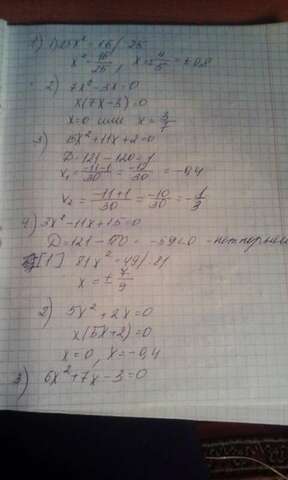 x² = 16/25, x = ± 4/5 = ± 0,8
2) 7x² - 3x = 0
x(7x - 3) = 0
x = 0 или x = 3/7
3) 15x² + 11x + 2 = 0
D = 121 - 120 = 1
x₁ = (-11-1)/30 = -12/30 = -0,4
x₂ = (-11+1)/30 = -10/30 = -1/3
4) 3x² - 11x + 15 = 0
D = 121 - 180 = -59 < 0 - нет
[1] 81x² = 49
x = ± 7/9
2) 5x² + 2x = 0
x(5x + 2) = 0
x = 0, x = -0,4
3) 6x² + 7x - 3 = 0